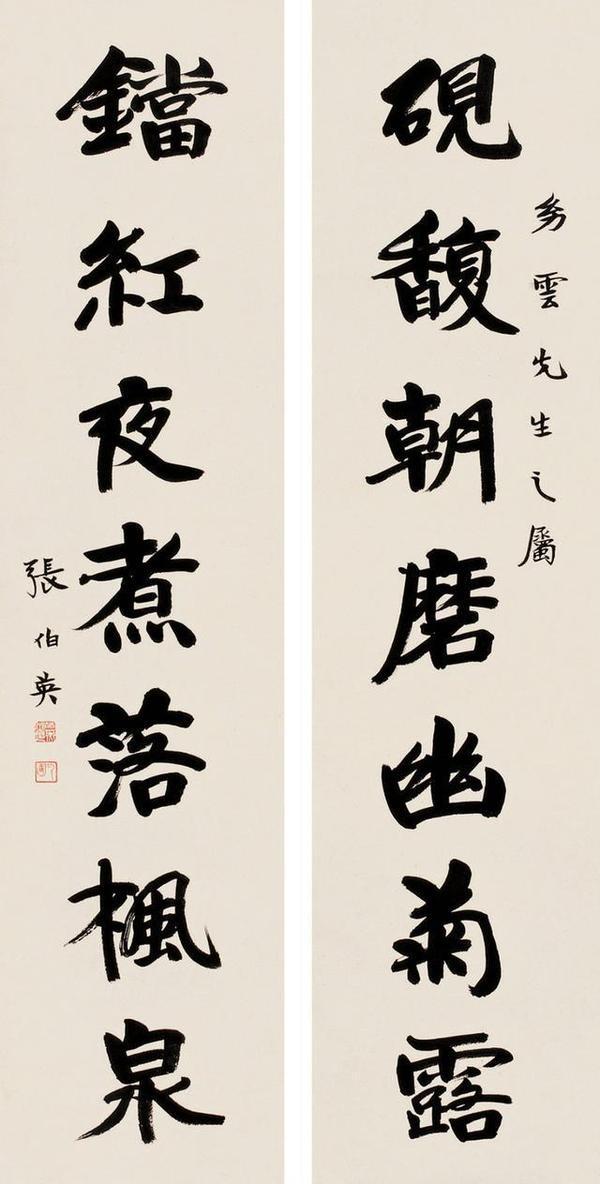 硯馥朝磨幽菊露
雲先生之屬
鐺紅夜煮落楓泉
張伯英